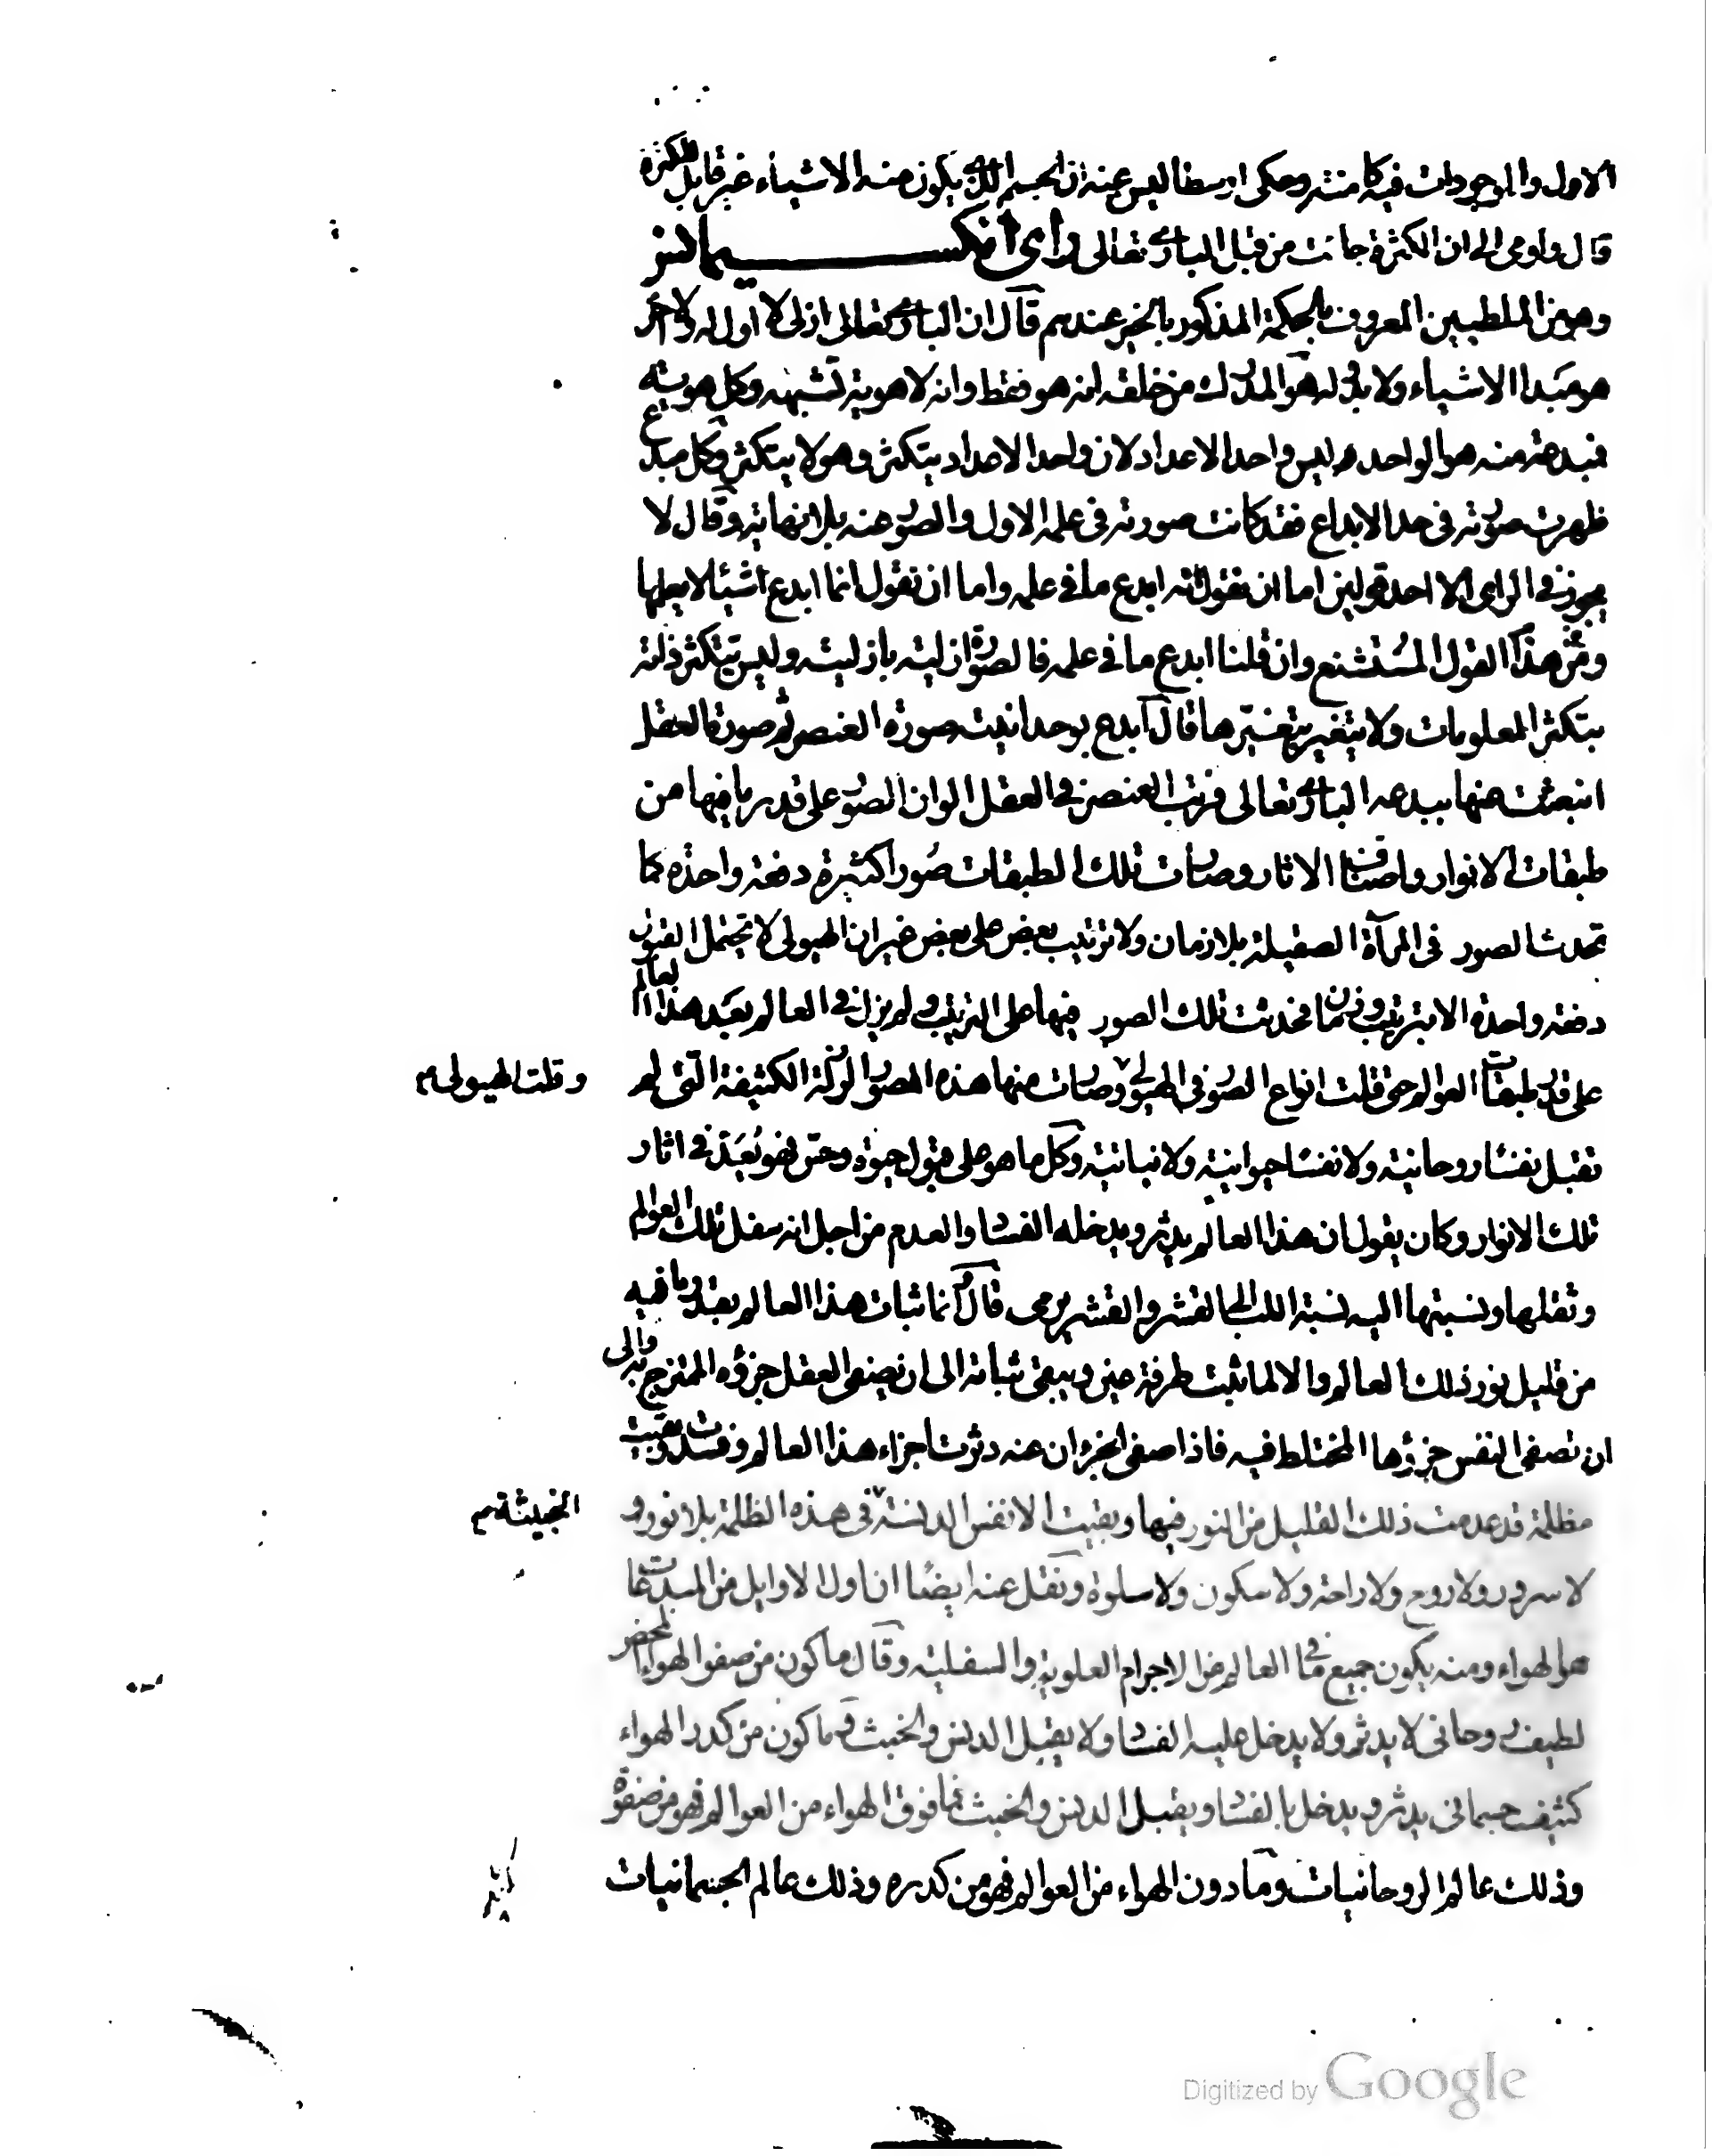 الاول والموجودات فيه كامنة وحكى ارسطاليس عنه ان الجسم الذى يكون منه الاشياء غير قابل للكثرة
قال واومى الى ان الكثرة جات من قبل البارى تعالى راى انكسيمانس
وهو من الملطيين المعروف بالحكمة المذكور بالخير عندهم قال ان البارى تعالى ازلى لا اول له ولا آخر
هو مبدا الاشياء ولا بدو له هو المدرك من خلقه انه هو فقط وانه لا هوية تشبهه وكل هوية
فمبدعة منه هو الواحد ليس واحد الاعداد لان واحد الاعداد يتكثر وهو لا يتكثر وكل مبدع
ظهرت صورته فى حد الابداع فقد كانت صورته فى علمه الاول والصور عنده بلا نهاية وقال لا
يجوز فى الراى الا احد قولين اما ان نقول انه ابدع ما فى علمه واما ان نقول انما ابدع اشيئا لا يعلمها
وهذا القول المستشنع وان قلنا ابدع ما فى علمه فالصورة ازلية بازليته وليس تتكثر ذاته
بتكثر المعلومات ولا يتغير بتغيرها قال ابدع بوحدانيته صورة العنصر ثم صورة العقل
انبعثت عنها ببدعه البارى تعالى فرتب العنصر فى العقل الوان الصور على قدر ما فيها من
طبقات الانوار واصناف الاثار وصارت تلك الطبقات صورا كثيرة دفعة واحدة كما
تحدث الصور فى المرآة الصقيلة بلا زمان ولا ترتيب بعض على بعض غير ان الهيولى لا تحتمل القبول
دفعة واحدة الا بترتيب وزمان فحدثت تلك الصور فيها على الترتيب ولم يزل فى العالم بعد هذا العالم
على قدر طبقات العوالم حتى قلت انواع الصور فى الهيولى وصارت منها هذه الصور الرذلة الكثيفة التى لم
وقلت الهيولى
تقبل نفسا روحانية ولا نفسا حيوانية ولا نباتية وكل ما هو على قبول حيوة وحس فهو بعد فى اثار
تلك الانوار وكان يقول ان هذا العالم يدثر ويدخله الفساد والعدم من اجل انه سفل تلك العوالم
وثقلها ونسبتها اليه نسبة اللب الى القشر والقشر يرمى قال وانما ثبات هذا العالم بقدر ما فيه
من قليل نور ذلك العالم والا لما ثبت طرفة عين ويبقى ثباته الى ان يصفى العقل جزؤه الممتزج به والى
ان تصفى النفس جزؤها المختلط فيه فاذا صفى الجزءان عنه دثرت اجزاء هذا العالم وفسدت وبقيت
مظلمة قد عدمت ذلك القليل من النور فيها وبقيت الانفس الدنسة فى هذه الظلمة بلا نور و
الخبيثة
لا سرور ولا روح ولا راحة ولا سكون ولا سلوة ونقل عنه ايضا ان اول الاوايل من المبدعات
هو الهواء ومنه يكون جميع ما فى العالم من الاجرام العلوية والسفلية وقال ما كون من صفو الهواء المحض
لطيف روحانى لا يدثر ولا يدخل عليه الفساد ولا يقبل الدنس والخبث وما كون من كدر الهواء
كثيف جسمانى يدثر ويدخل بالفساد ويقبل الدنس والخبث فما فوق الهواء من العوالم فهو من صفوه
وذلك عالم الروحانيات وما دون الهواء من العوالم فهو من كدره وذلك عالم الجسمانيات
Digitized by Google